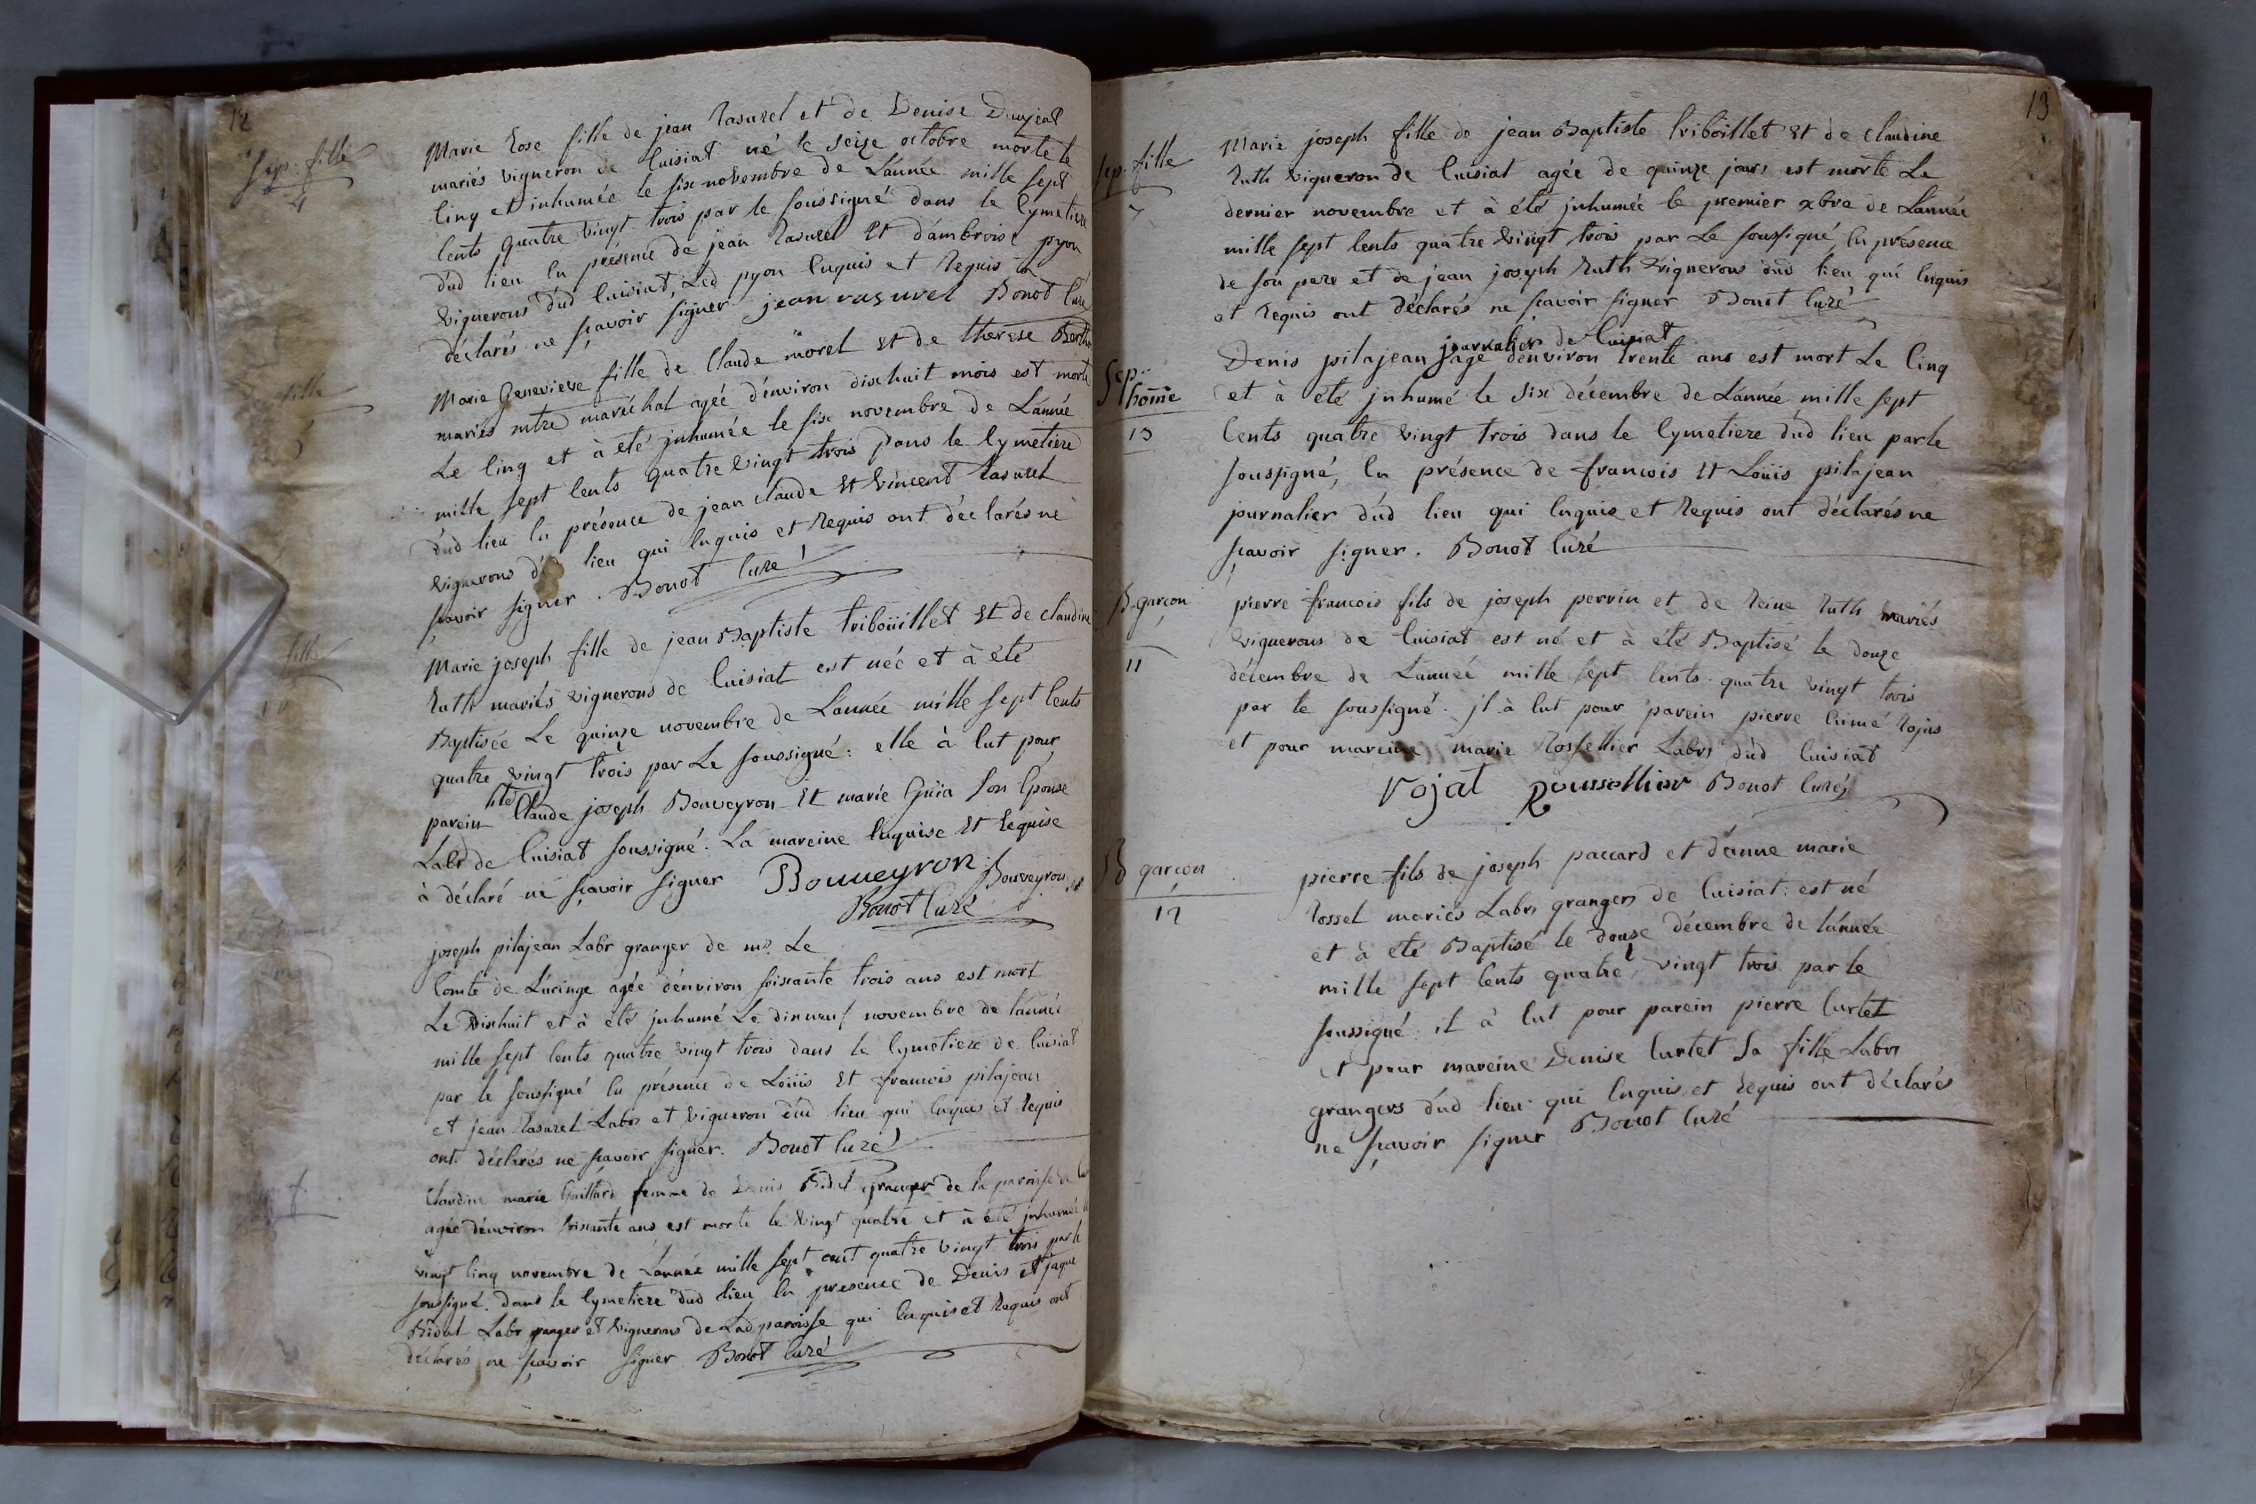 12
sep. fille
4
Marie Rose fille de jean Rasurel et de Denise
mariés vigneron de Cuisiat né le seize octobre morte le
cinq et inhumée le six novembre de L'année mille sept
cents quatre vingt trois par le soussigné dans le Cymetiere
dud lieu En présence de jean Rasurel Et d'ambroise pyon
vignerons dud Cuisiat, Led pyon Enquis et Requis a
déclarés ne sçavoir signer jean rasurel Bonot Curé
fille
Marie Genevieve fille de Claude morel Et de therese
mariés mtre maréchal agée d'environ dixhuit mois est morte
Le cinq et à été jnhumée le six novembre de L'année
mille sept cents quatre vingt trois dans le Cymetiere
dud lieu En présence de jean claude Et Vincent Rasurel
vignerons dud lieu qui Enquis et Requis ont déclarés ne
sçavoir signer. Bonot Curé
fille
Marie joseph fille de jean Baptiste triboüillet Et de claudine
Ruth mariés vignerons de Cuisiat est née et à été
Baptisée Le quinze novembre de L'année mille sept cents
quatre vingt trois par Le soussigné: elle à Eut pour
parein Claude joseph Bouveyron Et marie Guia son Epouse
Labr de Cuisiat soussigné. La mareine Enquise Et Requise
à déclaré ne sçavoir signer Bouveyron Bouveyron
Bonot Curé
joseph pilajean Labr granger de mr Le
Comte de Lucinge agée d'environ soixante trois ans est mort
Le Dixhuit et à été jnhumé Le dixneuf novembre de l'année
mille sept cents quatre vingt trois dans le Cymetiere de Cuisiat
par le soussigné En présence de Loüis Et francois pilajean
et jean Rasurel Labrs et vigneron dud lieu qui Enquis et Requis
ont déclarés ne sçavoir signer. Bonot Curé
Claudine marie Gaillard femme de Denis Bidal granger de la paroisse de
agée d'environ soixante ans est morte le vingt quatre et à été jnhumée
vingt cinq novembre de L'année mille sept cent quatre vingt trois par le
soussigné. dans le Cymetiere dud lieu En presence de Denis et jaque
Bidal Labr granger et vignerons de Lad paroisse qui Enquis et Requis ont
déclarés ne sçavoir signer Bonot Curé
13
sep. fille
7
Marie joseph fille de jean Baptiste triboillet Et de Claudine
Ruth vigneron de Cuisiat agée de quinze jours est morte Le
dernier novembre et à été jnhumée le premier xbre de L'année
mille sept Cents quatre vingt trois par Le soussigné, En présence
de son pere et de jean joseph Ruth vignerons dud lieu qui Enquis
et Requis ont déclarés ne sçavoir signer Bonot Curé
Sep..
homme
13
journalier de Cuisiat
Denis pilajean agé d'environ trente ans est mort Le Cinq
et à été jnhumé le six décembre de L'année mille sept
Cents quatre vingt trois dans le Cymetiere dud lieu par le
soussigné, En présence de francois Et Loüis pilajean
journalier dud lieu qui Enquis et Requis ont déclarés ne
sçavoir signer. Bonot Curé
B. garçon
11
pierre francois fils de joseph perrin et de Reine Ruth mariés
vignerons de Cuisiat est né et à été Baptisé le douze
décembre de L'année mille sept Cents quatre vingt trois
par le soussigné. jl à Eut pour parein pierre Rojas
et pour mareine marie Rossellier Labrs dud Cuisiat
Vojat Roussellier Bonot Curé
B garçon
12
pierre fils de joseph paccard et d'anne marie
Rossel mariés Labrs grangers de Cuisiat: est né
et à été Baptisé le douze décembre de l'année
mille sept Cents quatre vingt trois par le
soussigné: il à Eut pour parein pierre Curtet
et pour mareine Denise Curtet Sa fille Labrs
grangers dud lieu qui Enquis et Requis ont déclarés
ne sçavoir signer Bonot Curé